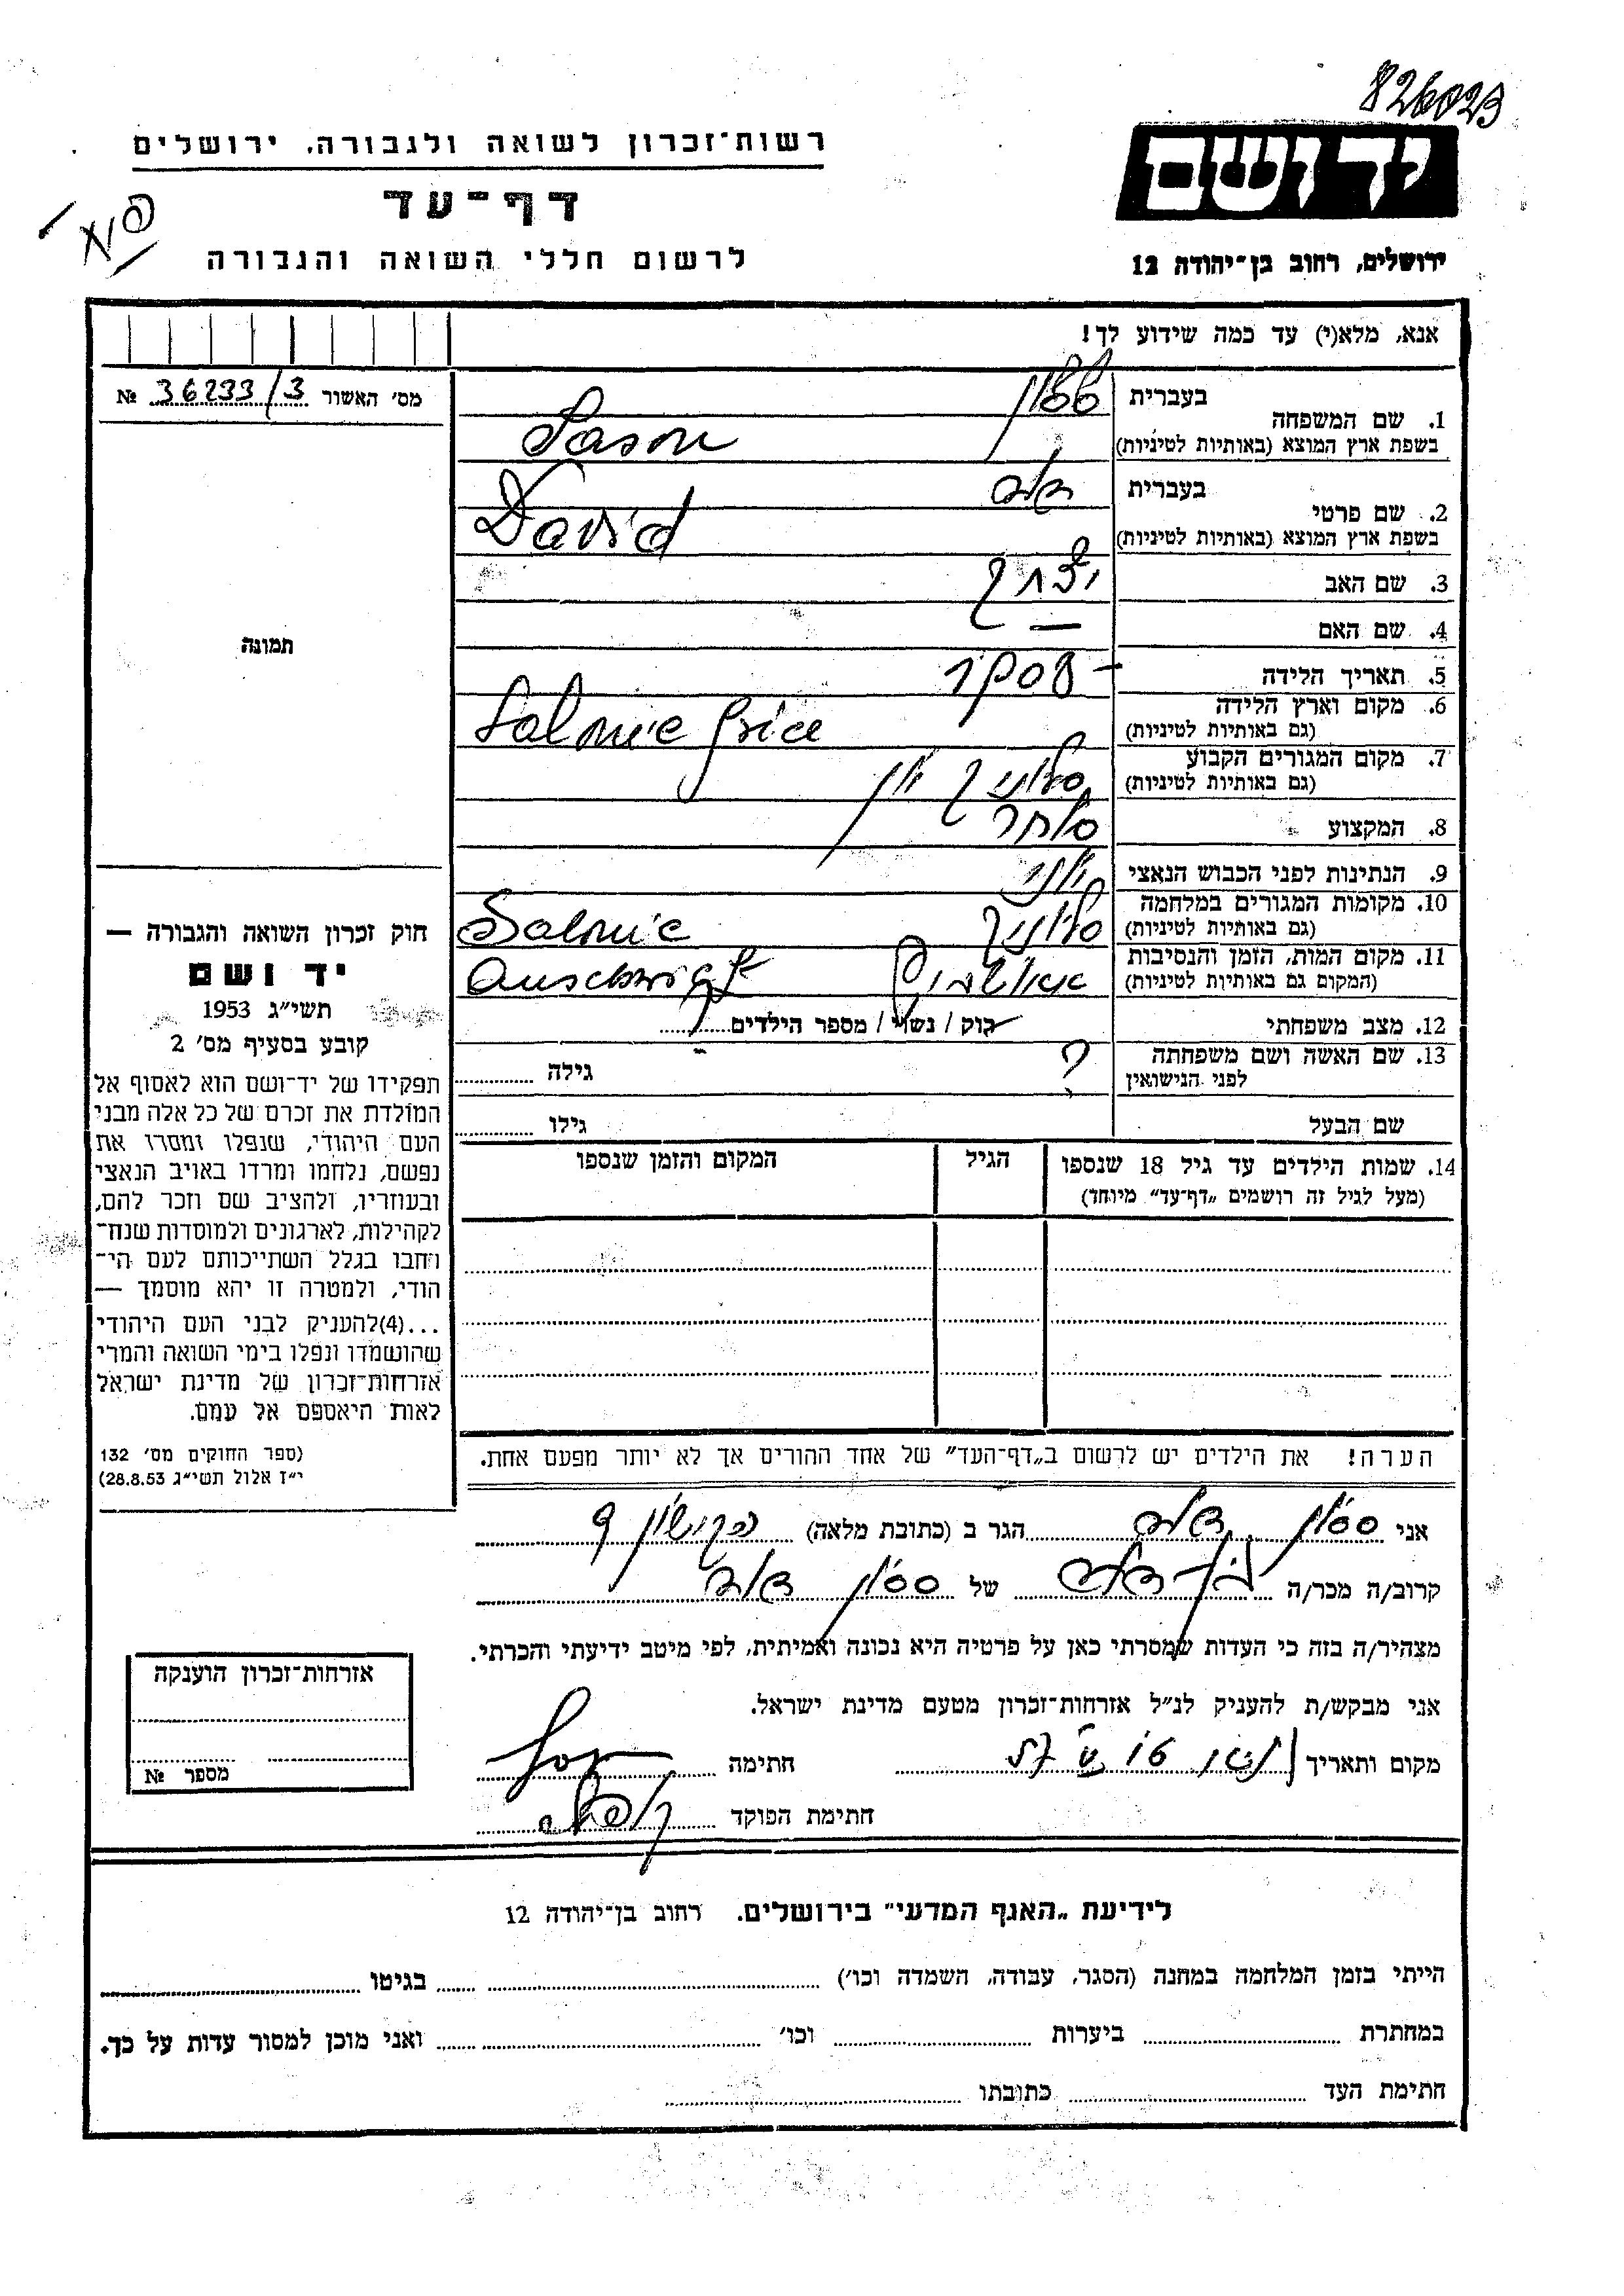 826023
רשות־זכרון לשואה ולגבורה, ירושלים
יד ושם
דף־עד
לרשום חללי השואה והגבורה
ירושלים, רחוב בן־יהודה 12
אנא, מלא(י) עד כמה שידוע לך!
מס׳ האשור 36233/3 №
1. שם המשפחה
בעברית ששון
בשפת ארץ המוצא (באותיות לטיניות) Sason
2. שם פרטי
בעברית דוד
בשפת ארץ המוצא (באותיות לטיניות) David
3. שם האב יצחק
4. שם האם —
5. תאריך הלידה
6. מקום וארץ הלידה
(גם באותיות לטיניות) Salonic Grice
7. מקום המגורים הקבוע
(גם באותיות לטיניות) סלוניק יון
8. המקצוע סוחר
9. הנתינות לפני הכבוש הנאצי יוני
10. מקומות המגורים במלחמה
(גם באותיות לטיניות) סלוניק Salonic
11. מקום המות, הזמן והנסיבות
(המקום גם באותיות לטיניות)
12. מצב משפחתי רוק / נשוי / מספר הילדים
13. שם האשה ושם משפחתה
לפני הנישואין ? גילה
שם הבעל גילו
14. שמות הילדים עד גיל 18 שנספו
(מעל לגיל זה רושמים „דף־עד” מיוחד)
הגיל
המקום והזמן שנספו
הערה! את הילדים יש לרשום ב„דף־העד” של אחד ההורים אך לא יותר מפעם אחת.
תמונה
חוק זכרון השואה והגבורה —
יד ושם
תשי״ג 1953
קובע בסעיף מס׳ 2
תפקידו של יד־ושם הוא לאסוף אל
המולדת את זכרם של כל אלה מבני
העם היהודי, שנפלו ומסרו את
נפשם, נלחמו ומרדו באויב הנאצי
ובעוזריו, ולהציב שם וזכר להם,
לקהילות, לארגונים ולמוסדות שנח־
רחבו בגלל השתייכותם לעם הי־
הודי, ולמטרה זו יהא מוסמך —
...(4)להעניק לבני העם היהודי
שהושמדו ונפלו בימי השואה והמרי
אזרחות־זכרון של מדינת ישראל
לאות היאספם אל עמם.
(ספר החוקים מס׳ 132
י״ז אלול תשי״ג 28.8.53)
אני ששון דוד הגר ב (כתובת מלאה)
קרוב/ה מכר/ה בן דוד של ששון דוד
מצהיר/ה בזה כי העדות שמסרתי כאן על פרטיה היא נכונה ואמיתית, לפי מיטב ידיעתי והכרתי.
אני מבקש/ת להעניק לנ״ל אזרחות־זכרון מטעם מדינת ישראל.
מקום ותאריך חתימה
חתימת הפוקד
אזרחות־זכרון הוענקה
מספר №
לידיעת „האגף המדעי” בירושלים. רחוב בן־יהודה 12
הייתי בזמן המלחמה במחנה (הסגר, עבודה, השמדה וכו׳) בגיטו
במחתרת ביערות וכו׳ ואני מוכן למסור עדות על כך.
חתימת העד כתובתו